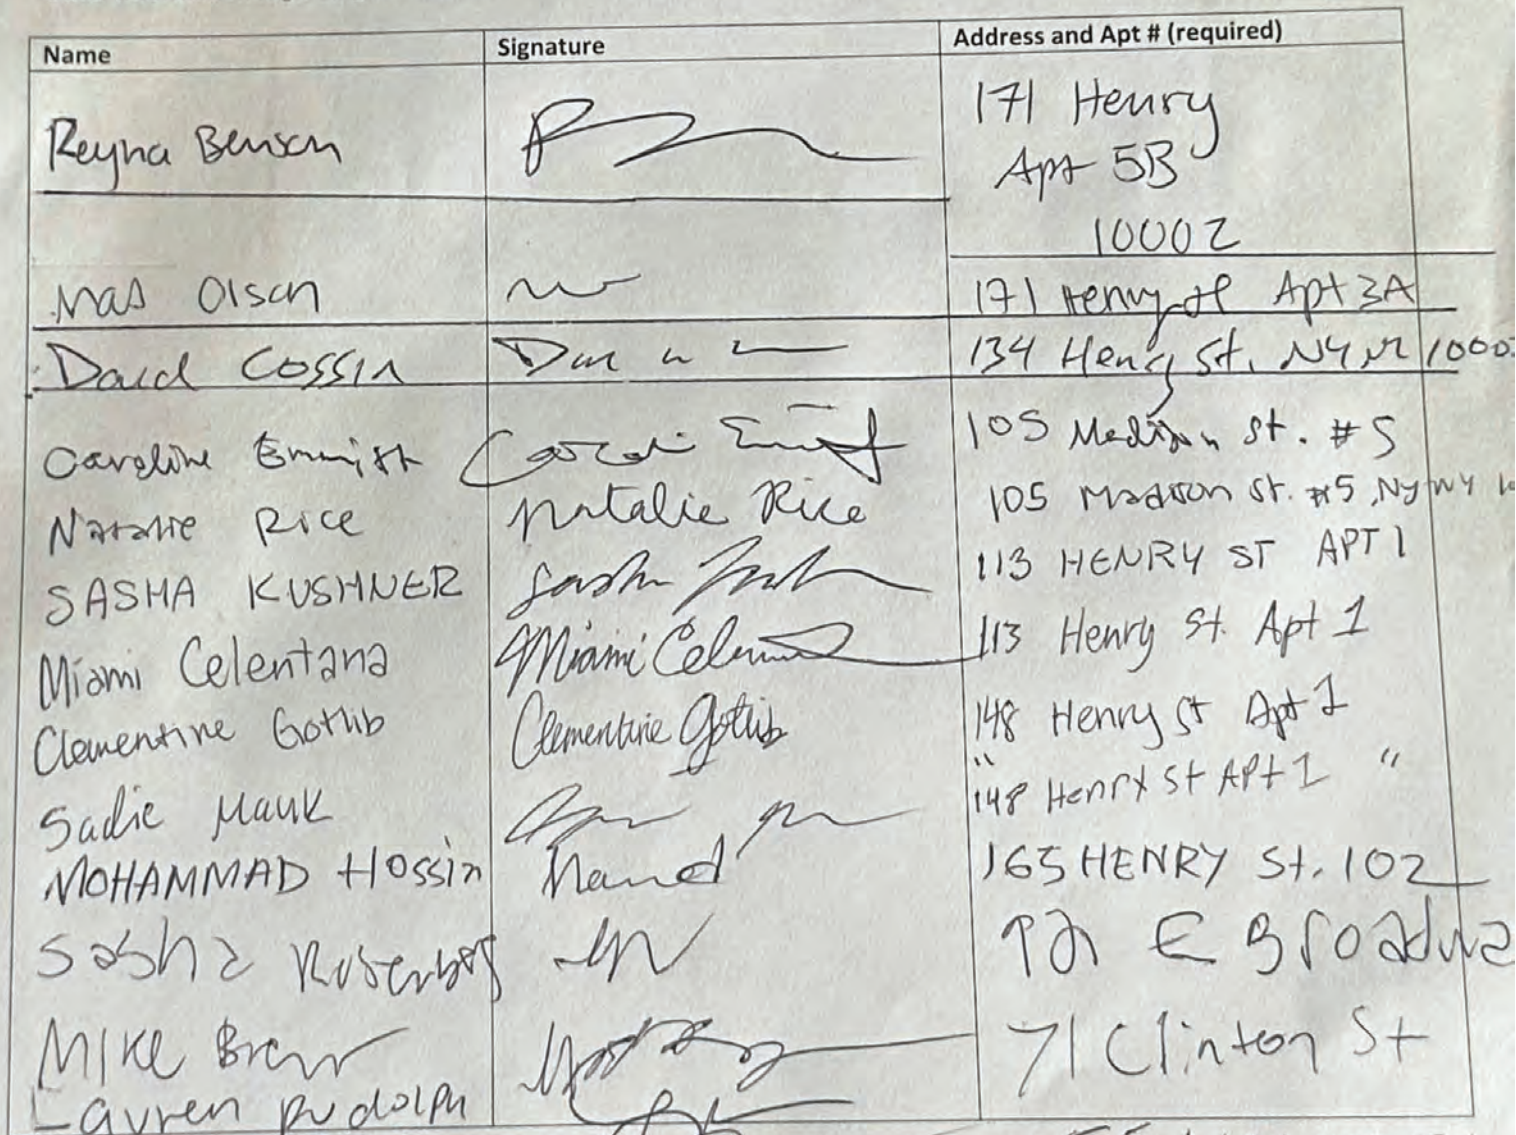 Name Signature Address and Apt # (required)
Reyna Benson 171 Henry
Apt 5B
10002
Olson 171 Henry st Apt 3A
David Cossin 134 Henry St. NY NY 1000
Caroline 105 Madison St. #5
Natalie Rice Natalie Rice 105 Madison St. #5, Ny NY
SASHA KUSHNER Sasha 113 HENRY ST APT 1
Miami Celentana Miami 113 Henry St. Apt 1
Clementine Gotlib Clementine Gotlib 148 Henry St Apt 1
Sadie Mauk " 148 Henry St APt 1 "
MOHAMMAD Hossin 165 HENRY St. 102
Sasha E Broadwa
Mike 71 Clinton St
Lauren Rudolph